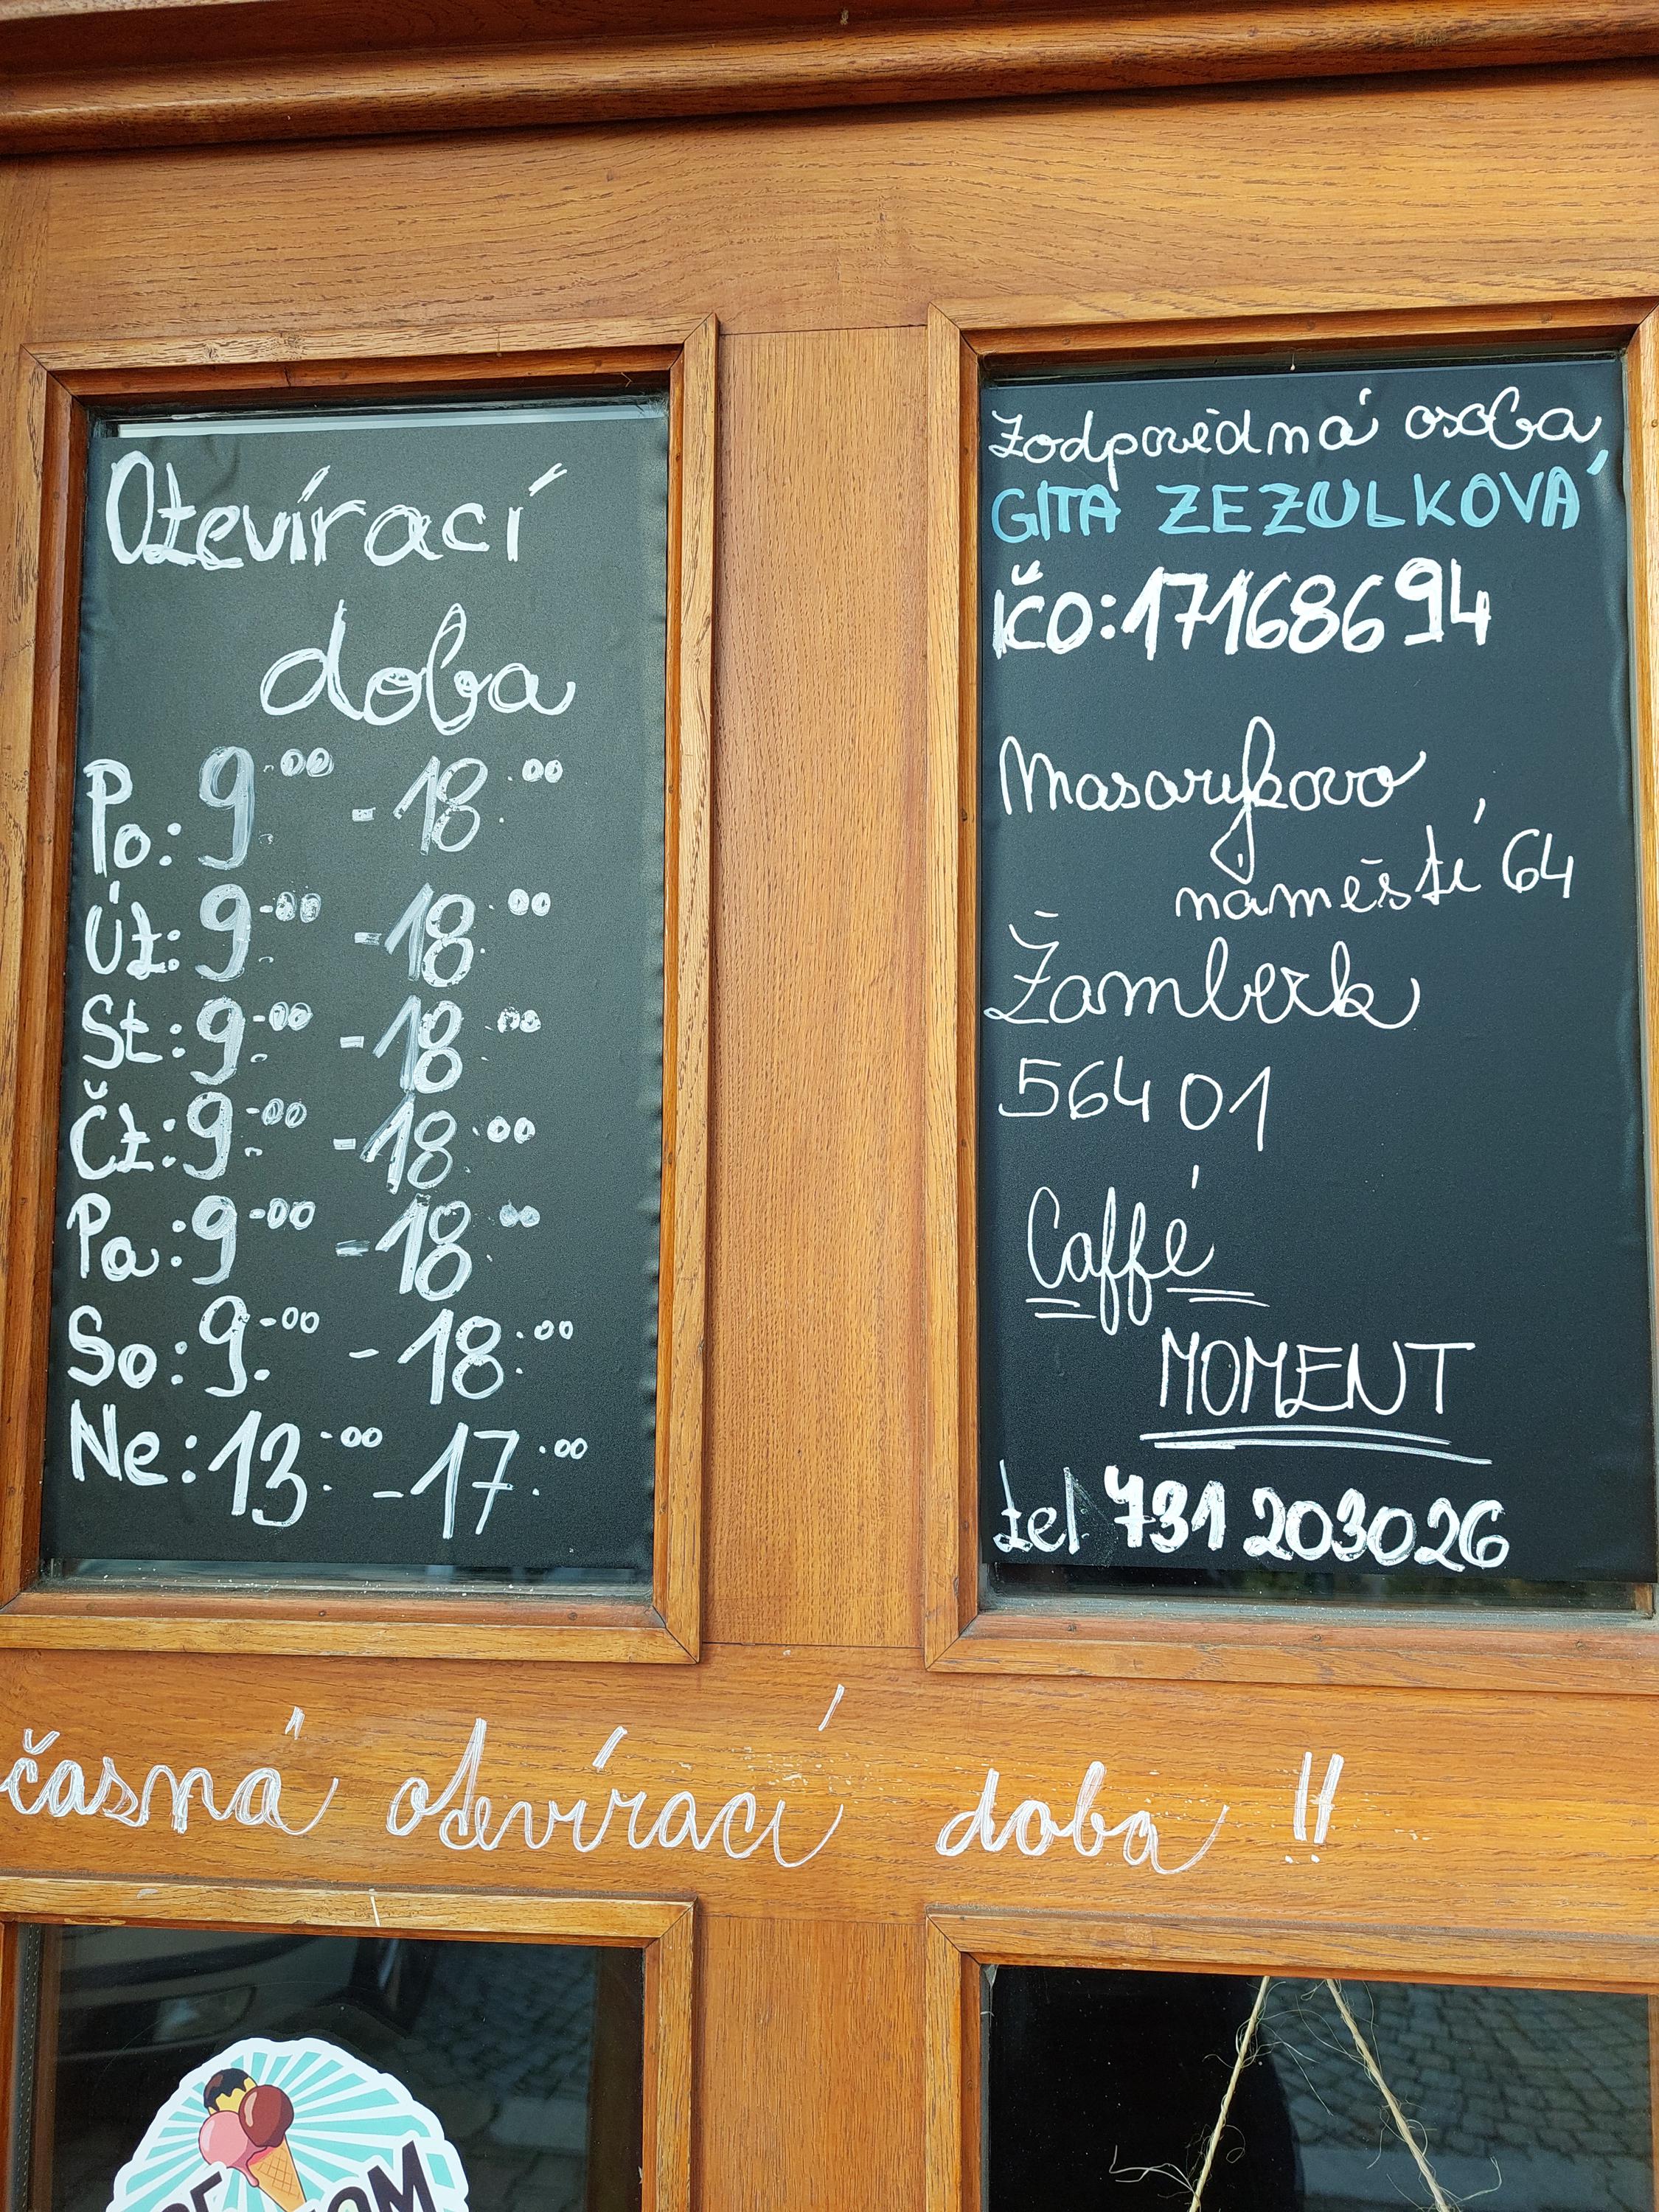 Otevírací
doba
Po: 9.00 - 18.00
Út: 9.00 - 18.00
St: 9.00 - 18.00
Čt: 9.00 - 18.00
Pa: 9.00 - 18.00
So: 9.00 - 18.00
Ne: 13.00 - 17.00
Zodpovědná osoba
GITA ZEZULKOVÁ
IČO: 17168694
Masarykovo
naměstí 64
Žamberk
564 01
Caffé
MOMENT
tel. 731 203026
časná otevírací doba !!